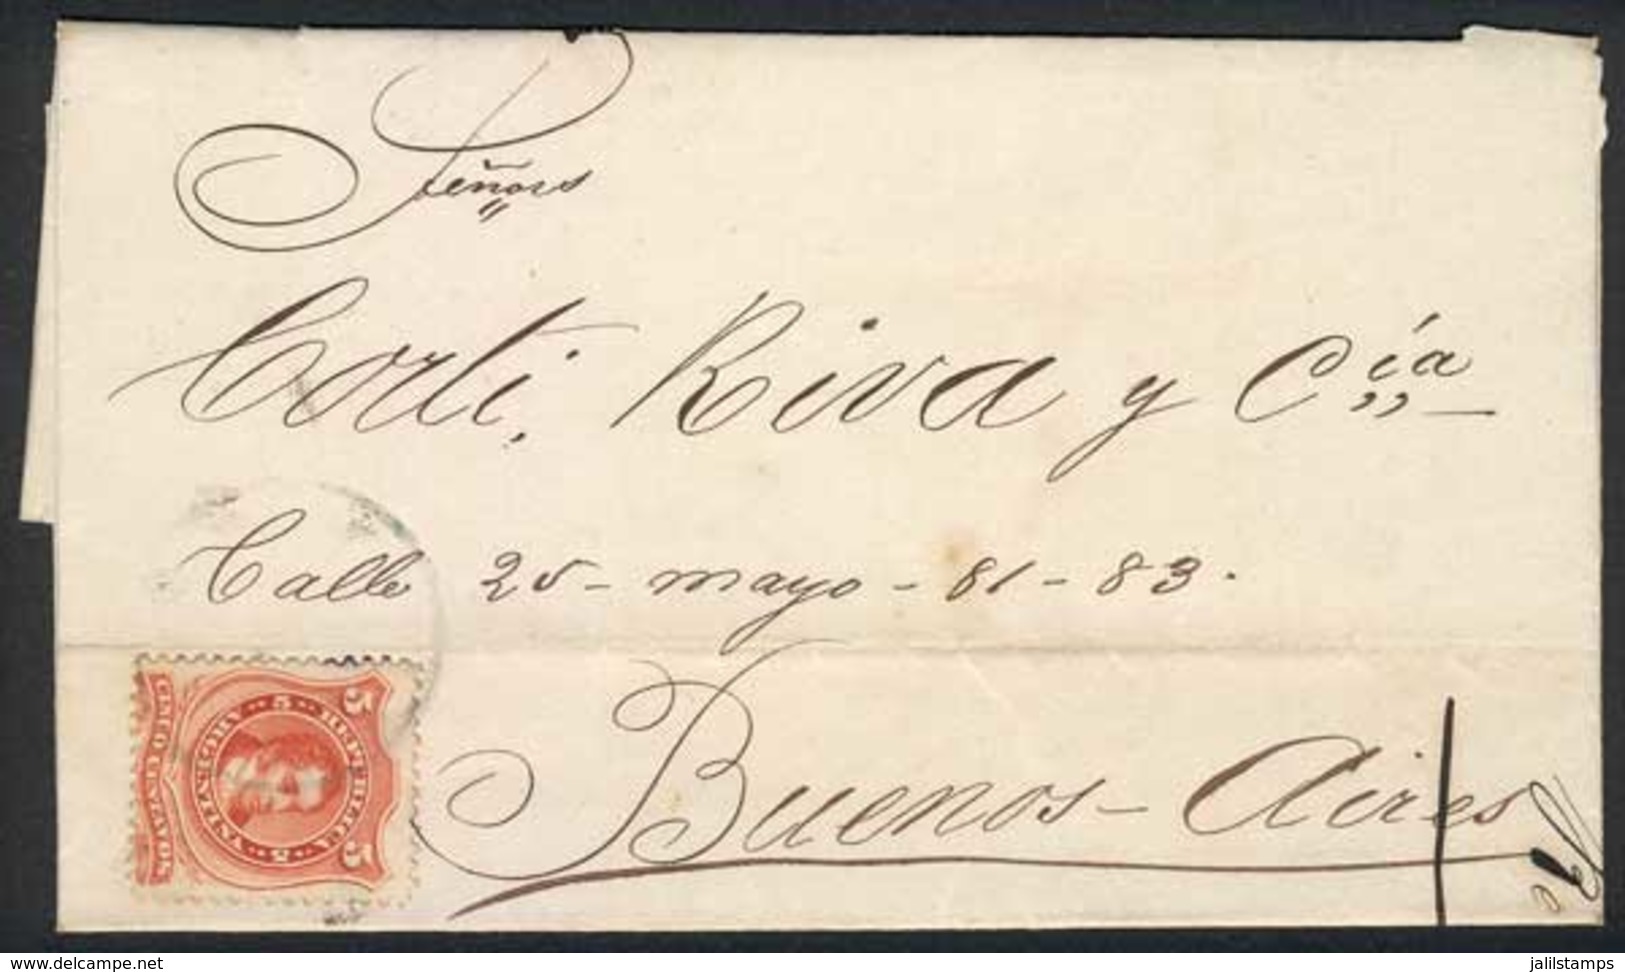 Señores
Corti, Riva y Cía
Calle 25 - mayo - 81 - 83.
Buenos - Aires
REPUBLICA ARGENTINA
5 5
5 5
CINCO CENTAVOS
www.delcampe.net
jalilstamps